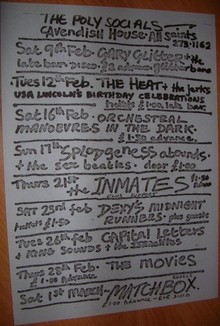 THE POLY SOCIALS
CAVENDISH HOUSE · All Saints
273-1162
Sat 9th Feb. GARY Glitter + the
late bar · Disco · band
Tues 12th Feb. THE HEAT + the jerks
USA LINCOLN'S BIRTHDAY CELEBRATIONS
tickets £1.00, late bar.
Sat 16th Feb · ORCHESTRAL
MANOEUVRES IN THE DARK.
£1.50 advance.
Sun 17th Splodgeness abounds
+ the sex beatles. door £1.00
Thurs 21st the INMATES
Sat 23rd feb DEXY'S MIDNIGHT
tickets £1.50 RUNNERS plus guests
Tues 26th feb Capital Letters
+ KING SOUNDS + The ISRAELITES
Thurs 28th Feb · THE MOVIES
£1.00 Advance
Sat 1st MARCH ~ MATCHBOX